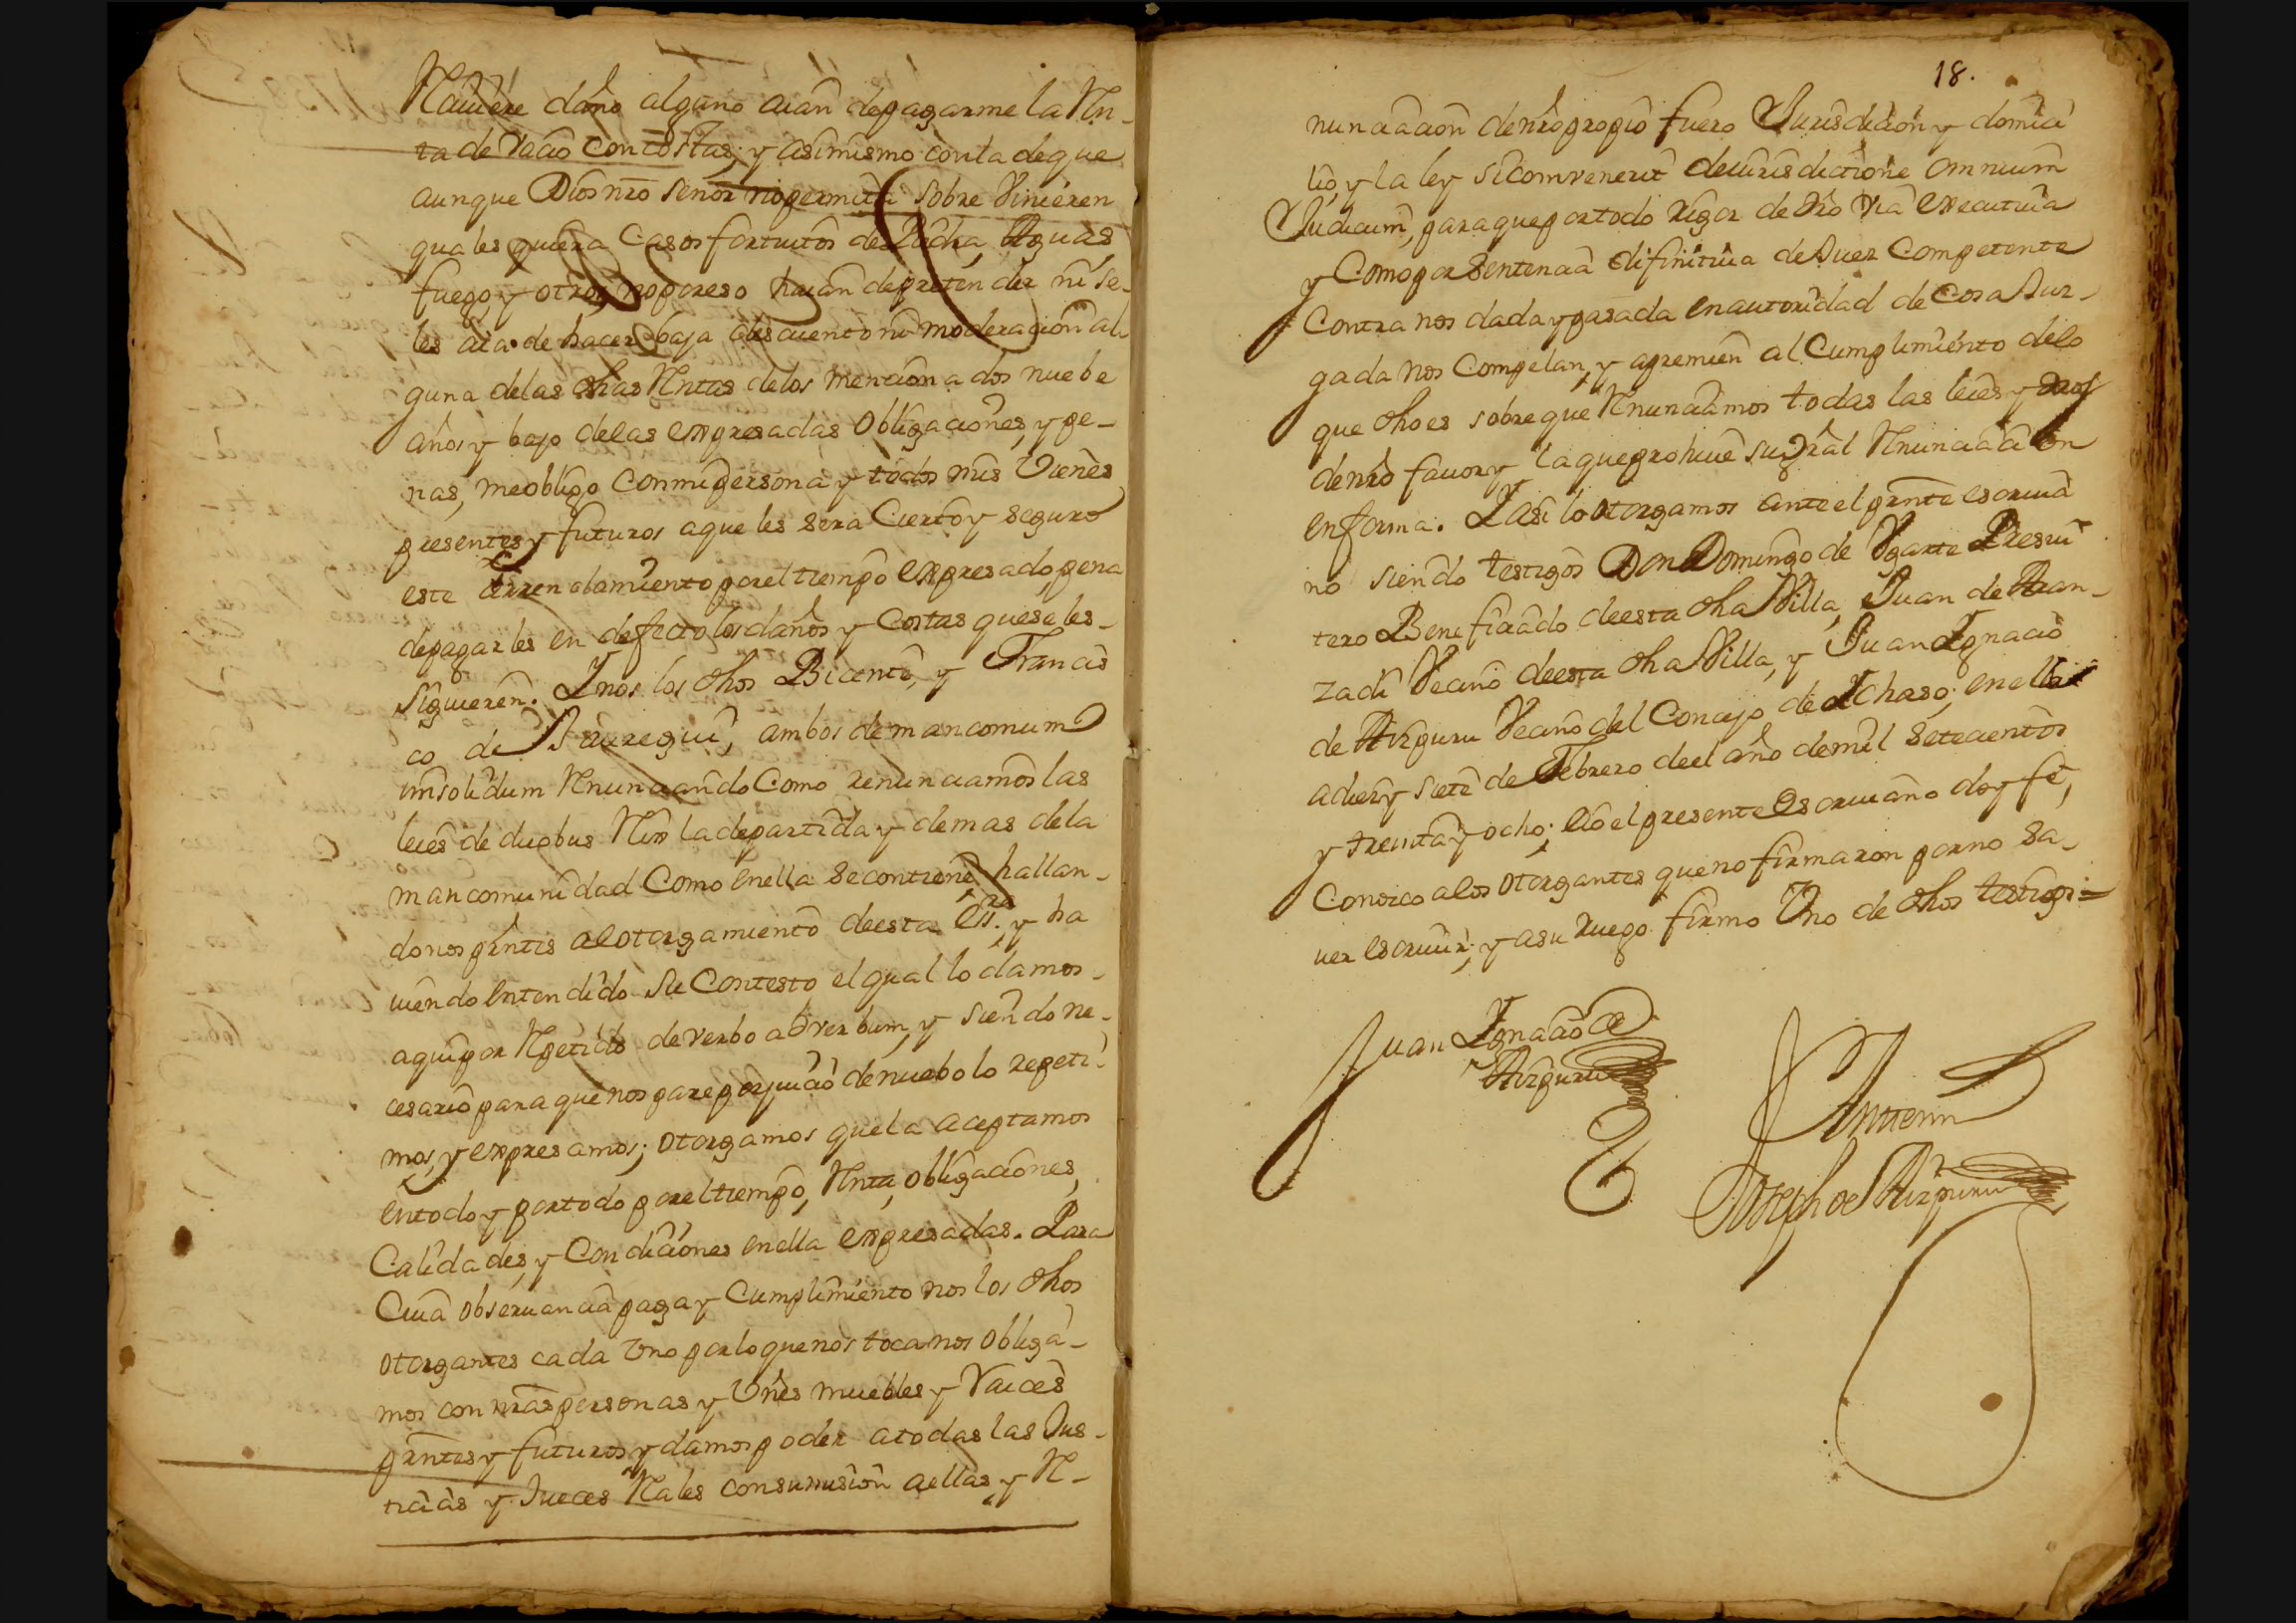 Rauiere daño alguno aian depagarme la Rn-
ta de Vacio con costas; y asimismo conta deque
aunque Dios nro señor nopermita sobre Vinieren
qualesquiera casos fortuitos de Piedra, Aguas,
fuego, y otros, noporeso haian depretender ni se-
les aia de hacer baja descuento ni moderacion al-
guna delas dhas Rntas delos mencionados nuebe
años y bajo delas expresadas obligaciones, y pe-
nas, meobligo conmipersona y todos mis Vienes
presentes y futuros aque les sera Cierto y seguro
este Arrendamiento porel tiempo expresado, pena
depagarles en defecto los daños y Costas quese les-
siguieren. Y nos los dhos Bicente, y Francis
co de Jauregui, ambos demancomum
imsolidum Rnunciando Como renunciamos las
leies de duobus Rex ladepartida y demas dela
mancomunidad Como enella secontiene, hallan-
donos prntes alotorgamiento deesta essra. y ha
uiendo entendido su Contesto el qual lo damos-
aqui por Rpetido de verbo adverbum, y siendo ne-
cesario para quenos pare perjuicio denuebo lo repeti-
mos, y expresamos; otorgamos quela aceptamos
entodo y portodo porel tiempo, Rnta, obligaciones,
Calidades, y Condiciones enella expresadas. Para
Cuia obseruancia paga y Cumplimiento nos los dhos
otorgantes cada Vno porloquenos tocanos obliga-
mos con nras personas y Vnes muebles y Raices
prntes y futuros, y damos poder atodas las Jus-
ticias y Jueces Rales consumision aellas, y R-
18.
nunciacion denro propio fuero Jurisdicion y domici
lio, y la ley sicomvenerit deiurisdictione omnium
Judicum, paraqueportodo rigor de dro via executiua
y Comopor Sentencia difinitiua de Juez Competente
Contra nos dada y pasada en autoridad de Cosa Juz-
gada nos Compelan, y apremien al Cumplimiento delo
que dho es sobreque Rnunciamos todas las leies y dros
denro fauor y laqueprohiue su gral Rnunciacion
enforma. Y asi lo otorgamos ante el prnte escriua
no siendo testigos Don Domingo de Vgarte Presui
tero Beneficiado deesta dha Villa, Juan de Aran-
zadi Vecino deesta dha Villa, y Juan Ignacio
de Aizpuru Vecino del Concejo de Ichaso; enella
adiezy siete de Febrero deel año demil setecientos
y treinta y ocho; eio el presente Escriuano doy fe,
Conozco alos otorgantes queno firmaron porno sa-
uer escriuir; y asu ruego firmo Vno de dhos testigos=
Juan Ignacio de
Aizpuru
Antemi
Joseph de Aizpuru